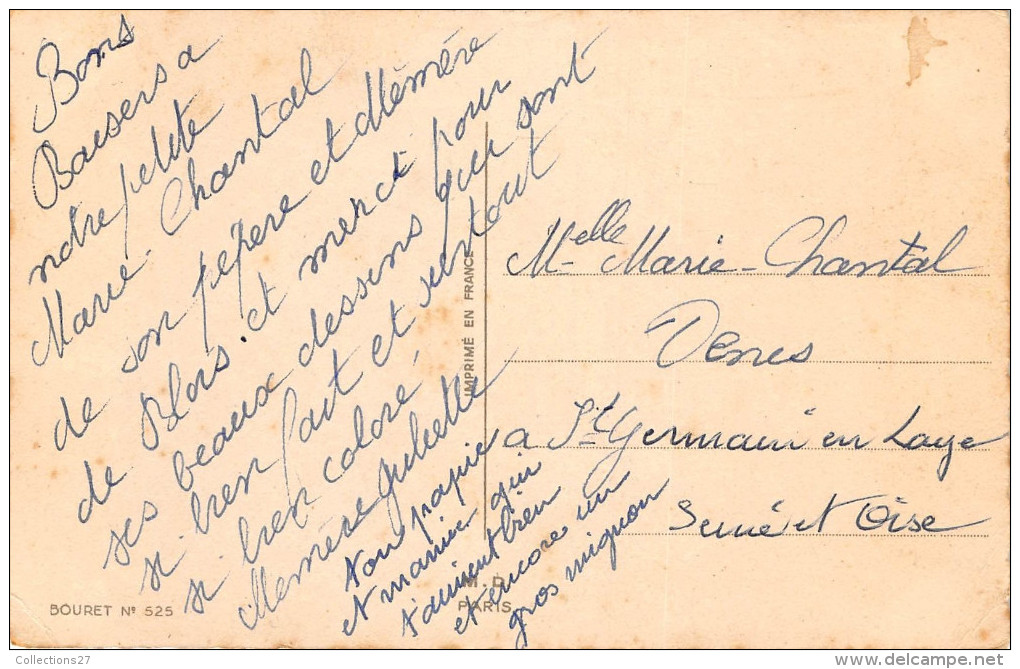 Bons
Baisers a
notre petite
Marie-Chantal
de son pepere et Mémére
de Blois. et merci pour
ses beaux dessins qui sont
si bien fait et surtout
si bien coloré
Mémére Juliette
ton papie
et mamie qui
t'aiment bien
et encore un
gros mignon
IMPRIMÉ EN FRANCE
Melle Marie-Chantal
Denes
a St Germain en Laye
Seine et Oise
M.D.
PARIS
BOURET Nº 525
Collections27
http://www.delcampe.net